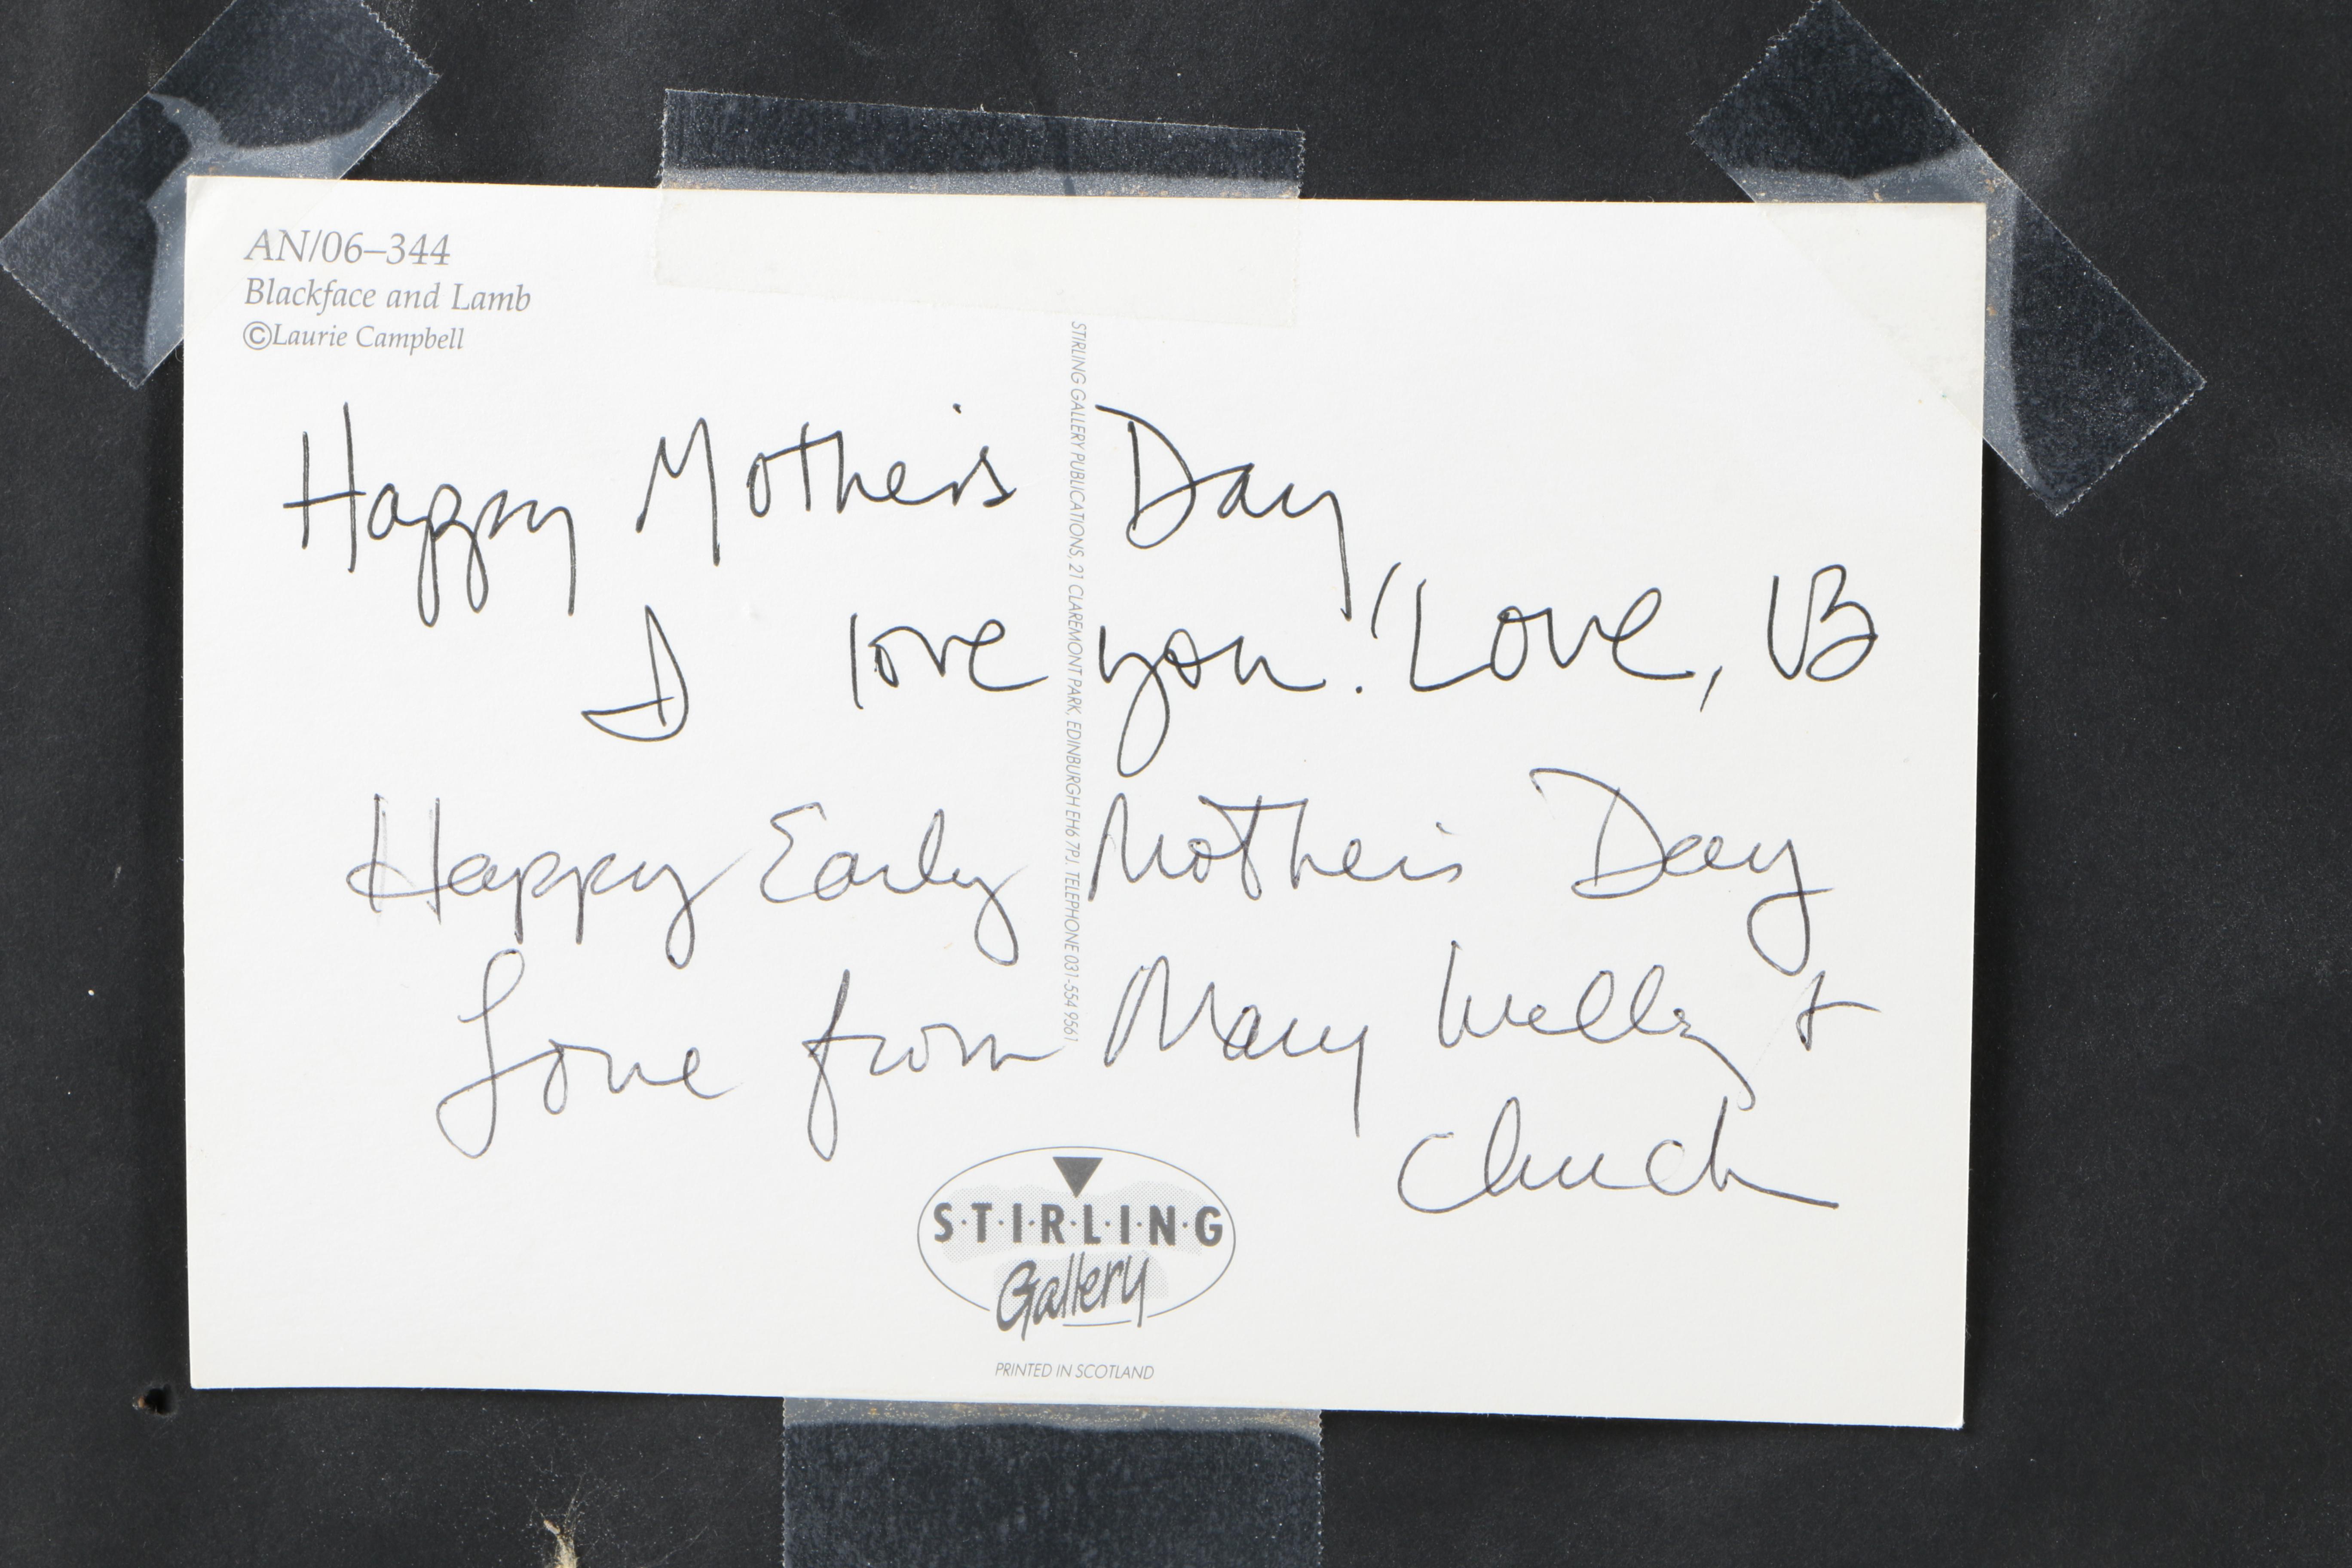 AN/06–344
Blackface and Lamb
©Laurie Campbell
STIRLING GALLERY PUBLICATIONS, 21 CLAREMONT PARK, EDINBURGH EH6 7PJ. TELEPHONE 031-554 9561
Happy Mother's Day
I love you! Love, VB
Happy Early Mother's Day
Love from Mary Wells +
Chuck
S·T·I·R·L·I·N·G
Gallery
PRINTED IN SCOTLAND